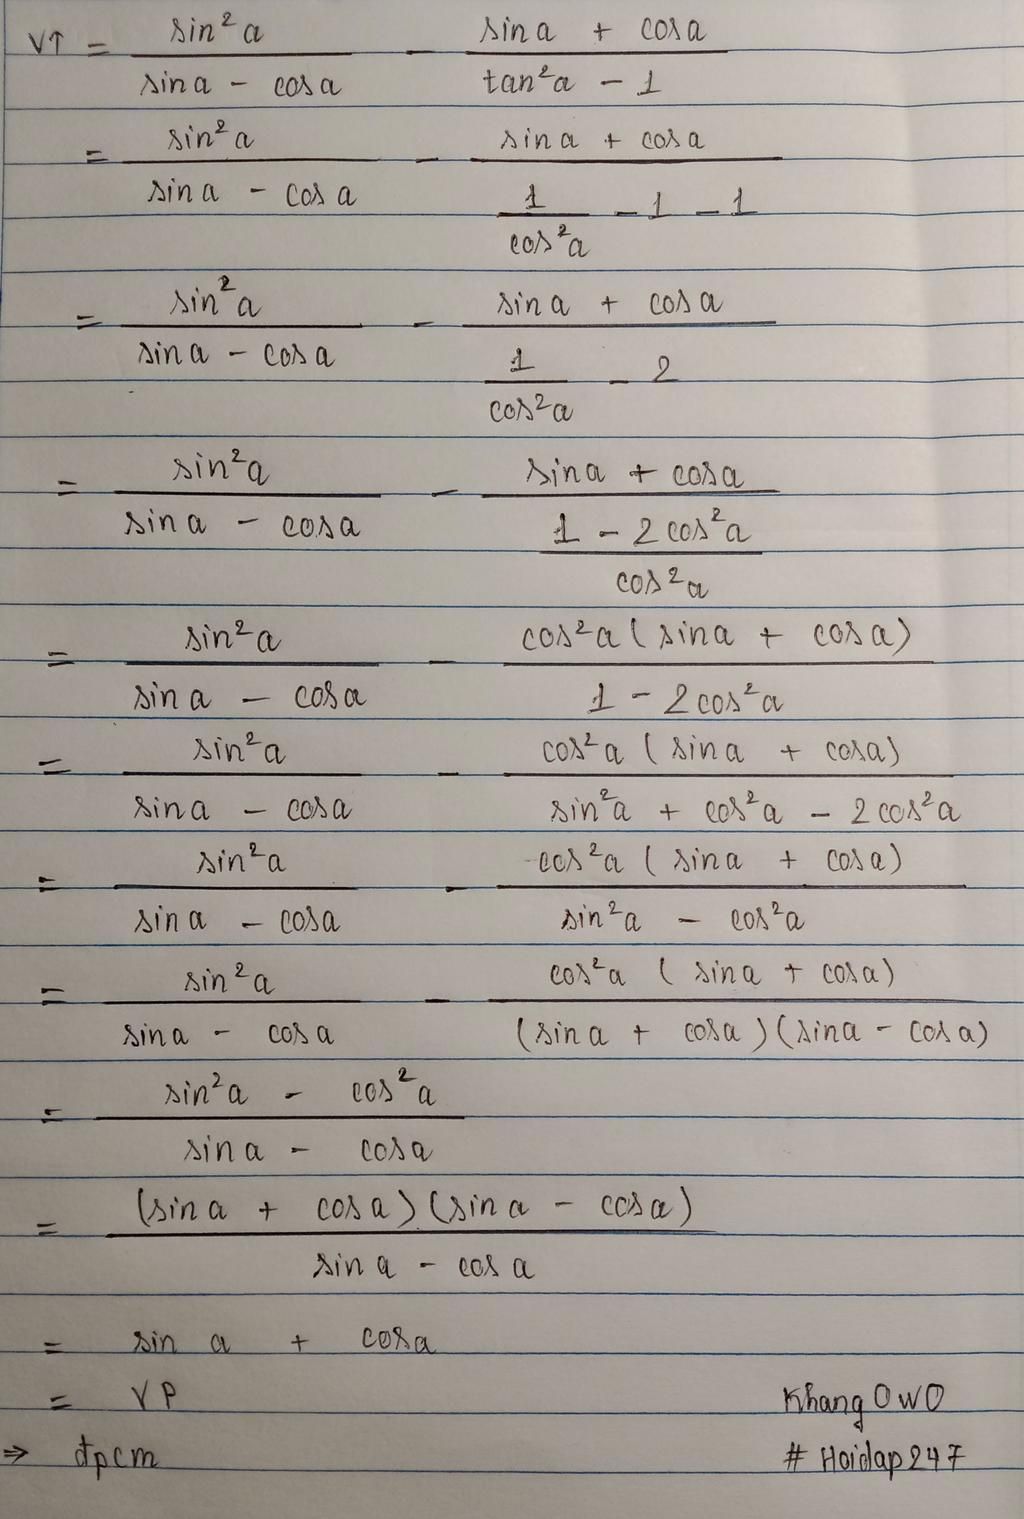 VT = sin²a / (sina - cosa) - (sina + cosa) / (tan²a - 1)
= sin²a / (sina - cosa) - (sina + cosa) / (1/cos²a - 1 - 1)
= sin²a / (sina - cosa) - (sina + cosa) / (1/cos²a - 2)
= sin²a / (sina - cosa) - (sina + cosa) / ((1 - 2cos²a)/cos²a)
= sin²a / (sina - cosa) - cos²a(sina + cosa) / (1 - 2cos²a)
= sin²a / (sina - cosa) - cos²a(sina + cosa) / (sin²a + cos²a - 2cos²a)
= sin²a / (sina - cosa) - cos²a(sina + cosa) / (sin²a - cos²a)
= sin²a / (sina - cosa) - cos²a(sina + cosa) / (sina + cosa)(sina - cosa)
= (sin²a - cos²a) / (sina - cosa)
= (sina + cosa)(sina - cosa) / (sina - cosa)
= sin a + cosa
= VP Khang OwO
⇒ đpcm # Hoidap247